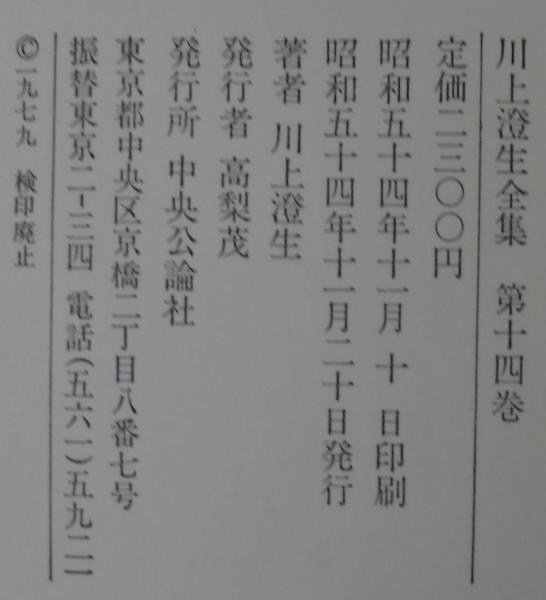 川上澄生全集　第十四巻
定価二三〇〇円
昭和五十四年十一月　十　日印刷
昭和五十四年十一月二十日発行
著者　川上澄生
発行者　高梨茂
発行所　中央公論社
東京都中央区京橋二丁目八番七号
振替東京二-三四　電話(五六一)五九二一
©一九七九　検印廃止